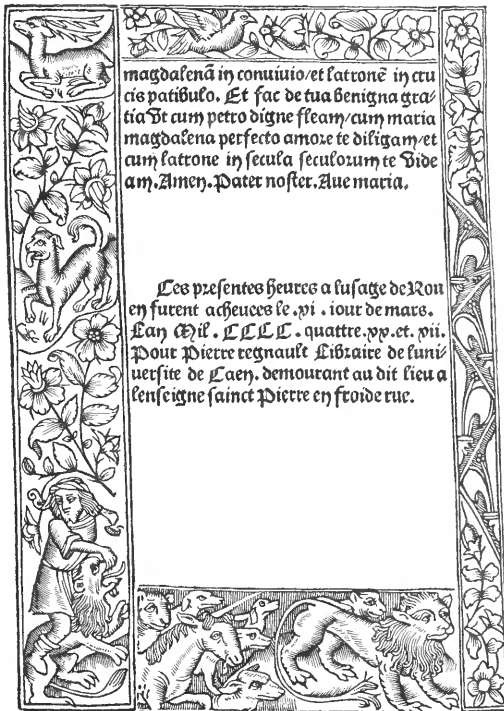 magdalenā in conuiuio/et latronē in cru
cis patibulo. Et fac de tua benigna gra-
tia vt cum petro digne fleam/cum maria
magdalena perfecto amore te diligam/et
cum latrone in secula seculorum te vide
am. Amen. Pater noster. Aue maria.
Ces presentes heures a lusage de Rou
en furent acheuees le .xi . iour de mars.
Lan Mil . CCCC . quattre.xx.et. xii.
Pour Pierre regnault Libraire de luni-
uersite de Caen. demourant au dit lieu a
lenseigne sainct Pierre en froide rue.